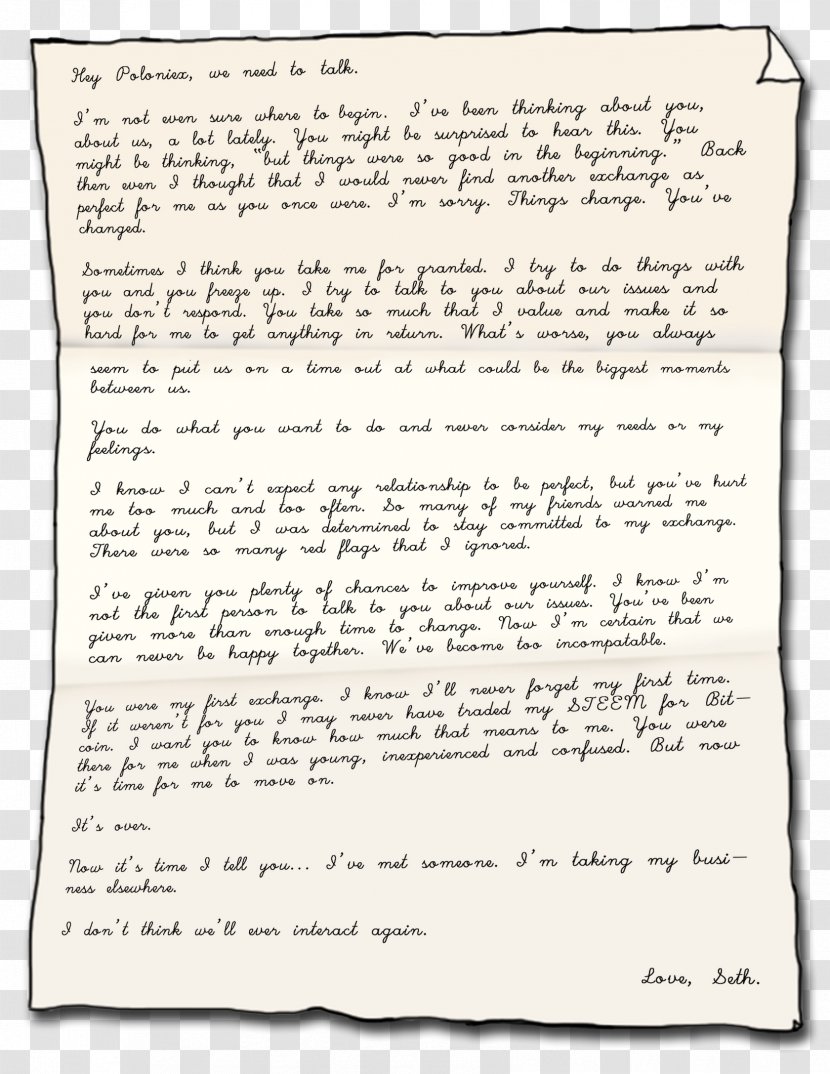 Hey Poloniex, we need to talk.
I'm not even sure where to begin. I've been thinking about you,
about us, a lot lately. You might be surprised to hear this. You
might be thinking, "but things were so good in the beginning." Back
then even I thought that I would never find another exchange as
perfect for me as you once were. I'm sorry. Things change. You've
changed.
Sometimes I think you take me for granted. I try to do things with
you and you freeze up. I try to talk to you about our issues and
you don't respond. You take so much that I value and make it so
hard for me to get anything in return. What's worse, you always
seem to put us on a time out at what could be the biggest moments
between us.
You do what you want to do and never consider my needs or my
feelings.
I know I can't expect any relationship to be perfect, but you've hurt
me too much and too often. So many of my friends warned me
about you, but I was determined to stay committed to my exchange.
There were so many red flags that I ignored.
I've given you plenty of chances to improve yourself. I know I'm
not the first person to talk to you about our issues. You've been
given more than enough time to change. Now I'm certain that we
can never be happy together. We've become too incompatable.
You were my first exchange. I know I'll never forget my first time.
If it weren't for you I may never have traded my STEEM for Bit-
coin. I want you to know how much that means to me. You were
there for me when I was young, inexperienced and confused. But now
it's time for me to move on.
It's over.
Now it's time I tell you... I've met someone. I'm taking my busi-
ness elsewhere.
I don't think we'll ever interact again.
Love, Seth.